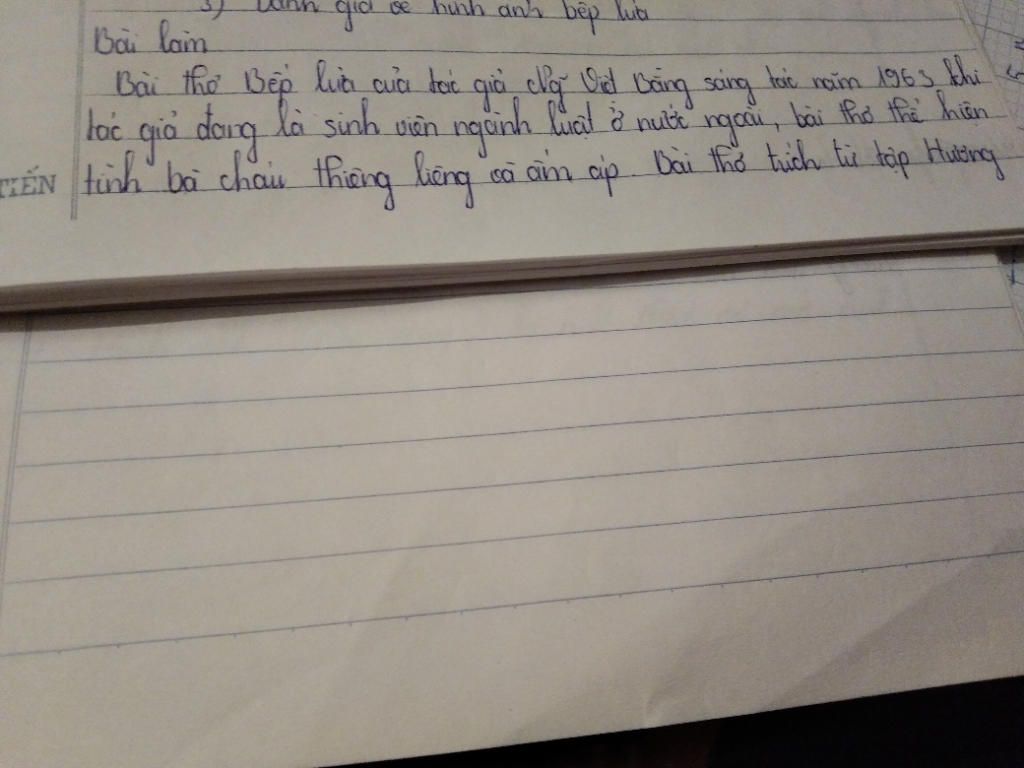 3) Đánh giá về hình ảnh bếp lửa
Bài làm
Bài thơ Bếp lửa của tác giả Việt Bằng sáng tác năm 1963 khi
tác giả đang là sinh viên ngành luật ở nước ngoài, bài thơ thể hiện
TIẾN tình bà cháu thiêng liêng và ấm áp. Bài thơ trích từ tập Hương